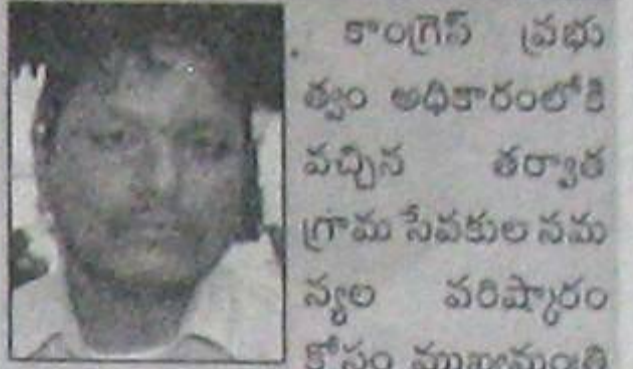 కాంగ్రెస్ ప్రభు
త్వం అధికారంలోకి
వచ్చిన తర్వాత
గ్రామ సేవకుల సమ
స్యల పరిష్కారం
కోసం ముఖ్యమంత్రి